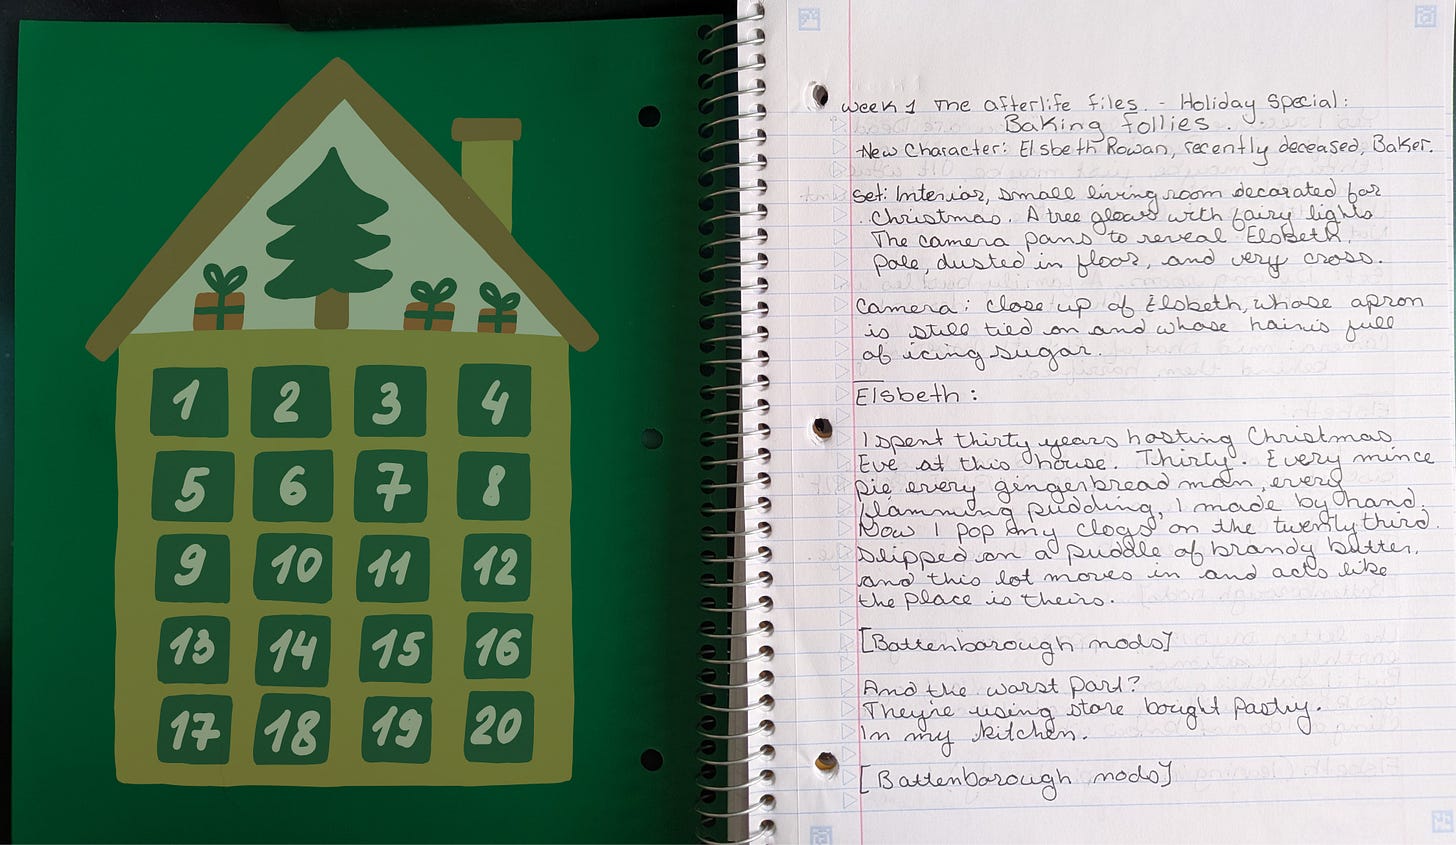 1 2 3 4
5 6 7 8
9 10 11 12
13 14 15 16
17 18 19 20
week 1 The afterlife files. - Holiday Special:
Baking follies.
New Character: Elsbeth Rowan, recently deceased, Baker.
Set: Interior, small living room decorated for
Christmas. A tree glows with fairy lights
The camera pans to reveal Elsbeth.
Pale, dusted in floor, and very cross.
Camera: close up of Elsbeth, whose apron
is still tied on and whose hair is full
of icing sugar.
Elsbeth:
I spent thirty years hosting Christmas
Eve at this house. Thirty. Every mince
pie every gingerbread man, every
flamming pudding, I made by hand.
Now I pop my clogs on the twenty third.
Slipped on a puddle of brandy butter,
and this lot moves in and acts like
the place is theirs.
[Battenborough nods]
And the worst part?
They're using store bought pastry.
In my kitchen.
[Battenborough nods]